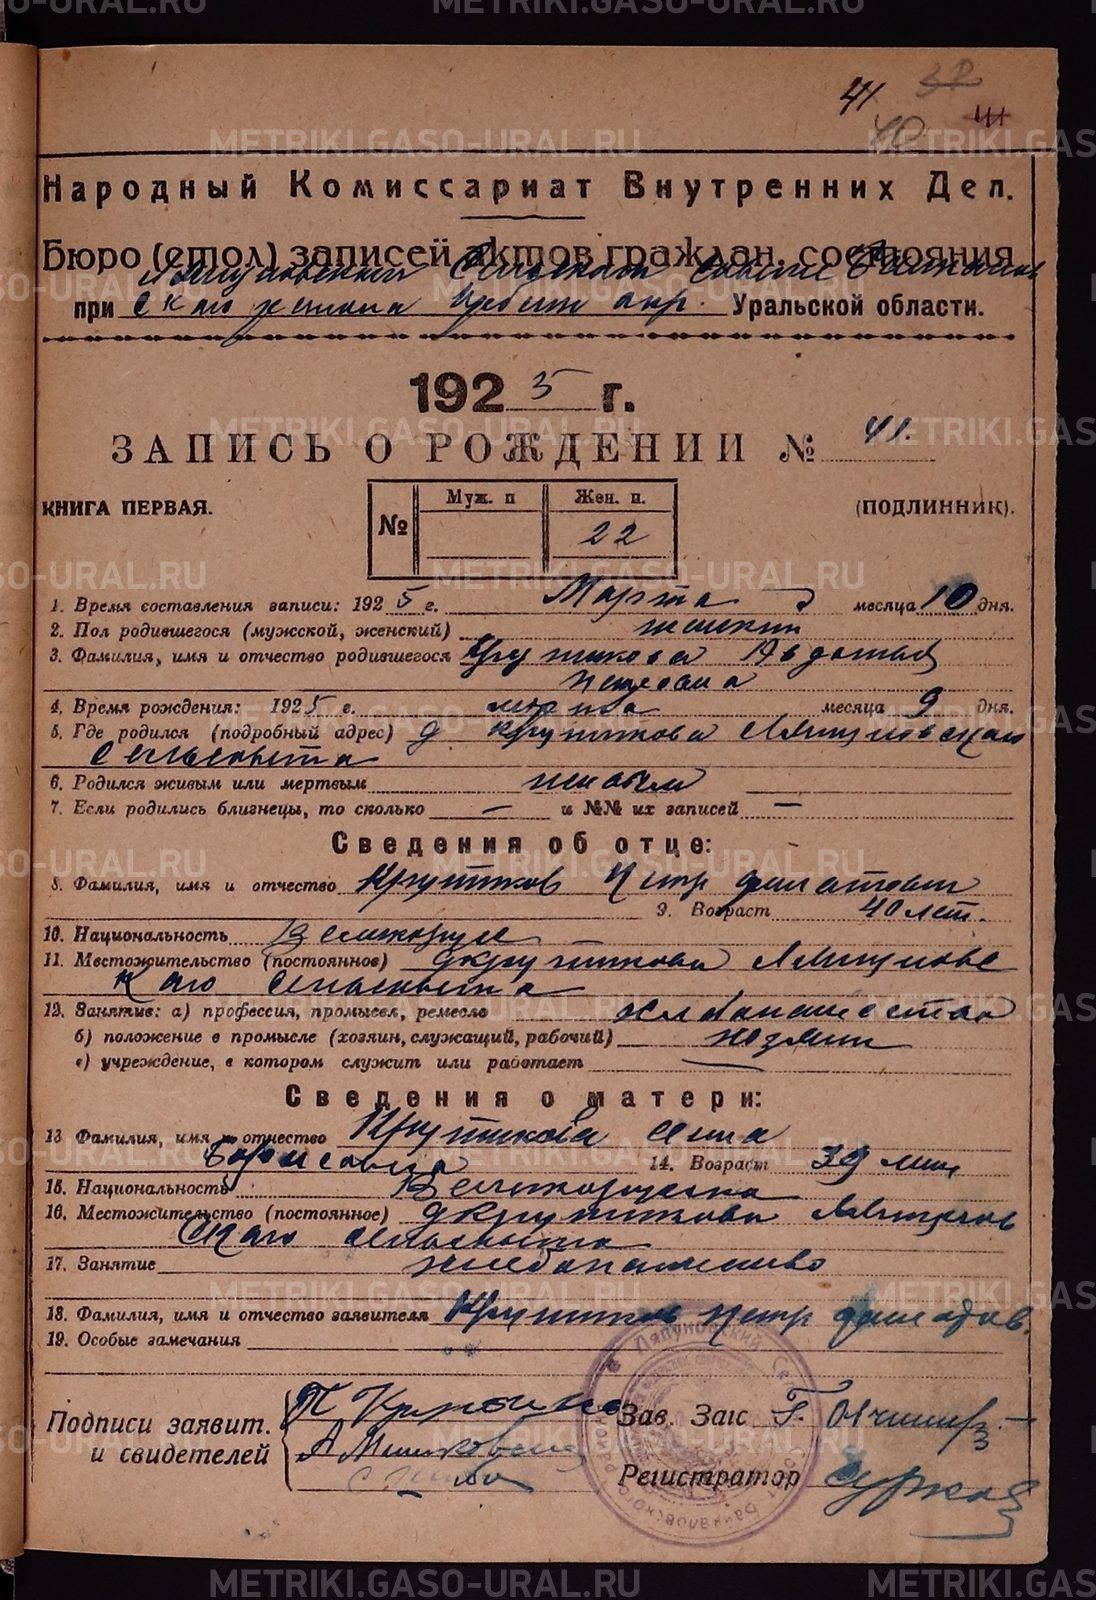 41 39
40 41
Народный Комиссариат Внутренних Дел.
Бюро (стол) записей актов граждан. состояния
Ляпуновский Сельском Совете Байкалов
при ского района Ирбит окр. Уральской области.
1925 г.
ЗАПИСЬ О РОЖДЕНИИ № 41.
КНИГА ПЕРВАЯ. № Муж. п Жен. п. 22 (ПОДЛИННИК).
1. Время составления записи: 1925 г. Марта месяца 10 дня.
2. Пол родившегося (мужской, женский) женский
3. Фамилия, имя и отчество родившегося Крутикова Авдотья
Петровна
4. Время рождения: 1925 г. марта месяца 9 дня.
5. Где родился (подробный адрес) д Крутикова Ляпуновского
Сельсовета
6. Родился живым или мертвым живым
7. Если родились близнецы, то сколько — и №№ их записей —
Сведения об отце:
8. Фамилия, имя и отчество Крутиков Петр Филатович
9. Возраст 40 лет.
10. Национальность Великорусс
11. Местожительство (постоянное) д Крутикова Ляпуновс
кого Сельсовета
12. Занятие: а) профессия, промысел, ремесло хлебопашество
б) положение в промысле (хозяин, служащий, рабочий) хозяин
в) учреждение, в котором служит или работает —
Сведения о матери:
13 Фамилия, имя и отчество Крутикова Анна
Борисовна 14. Возраст 39 лет
15. Национальность Великорусска
16. Местожительство (постоянное) д Крутикова Ляпунов
ского сельсовета
17. Занятие хлебопашество
18. Фамилия, имя и отчество заявителя Крутиков Петр Филатов.
19. Особые замечания
Подписи заявит. П Крутиков Зав. Загс Г.
и свидетелей А Регистратор
Ляпуновский Сел
METRIKI.GASO-URAL.RU